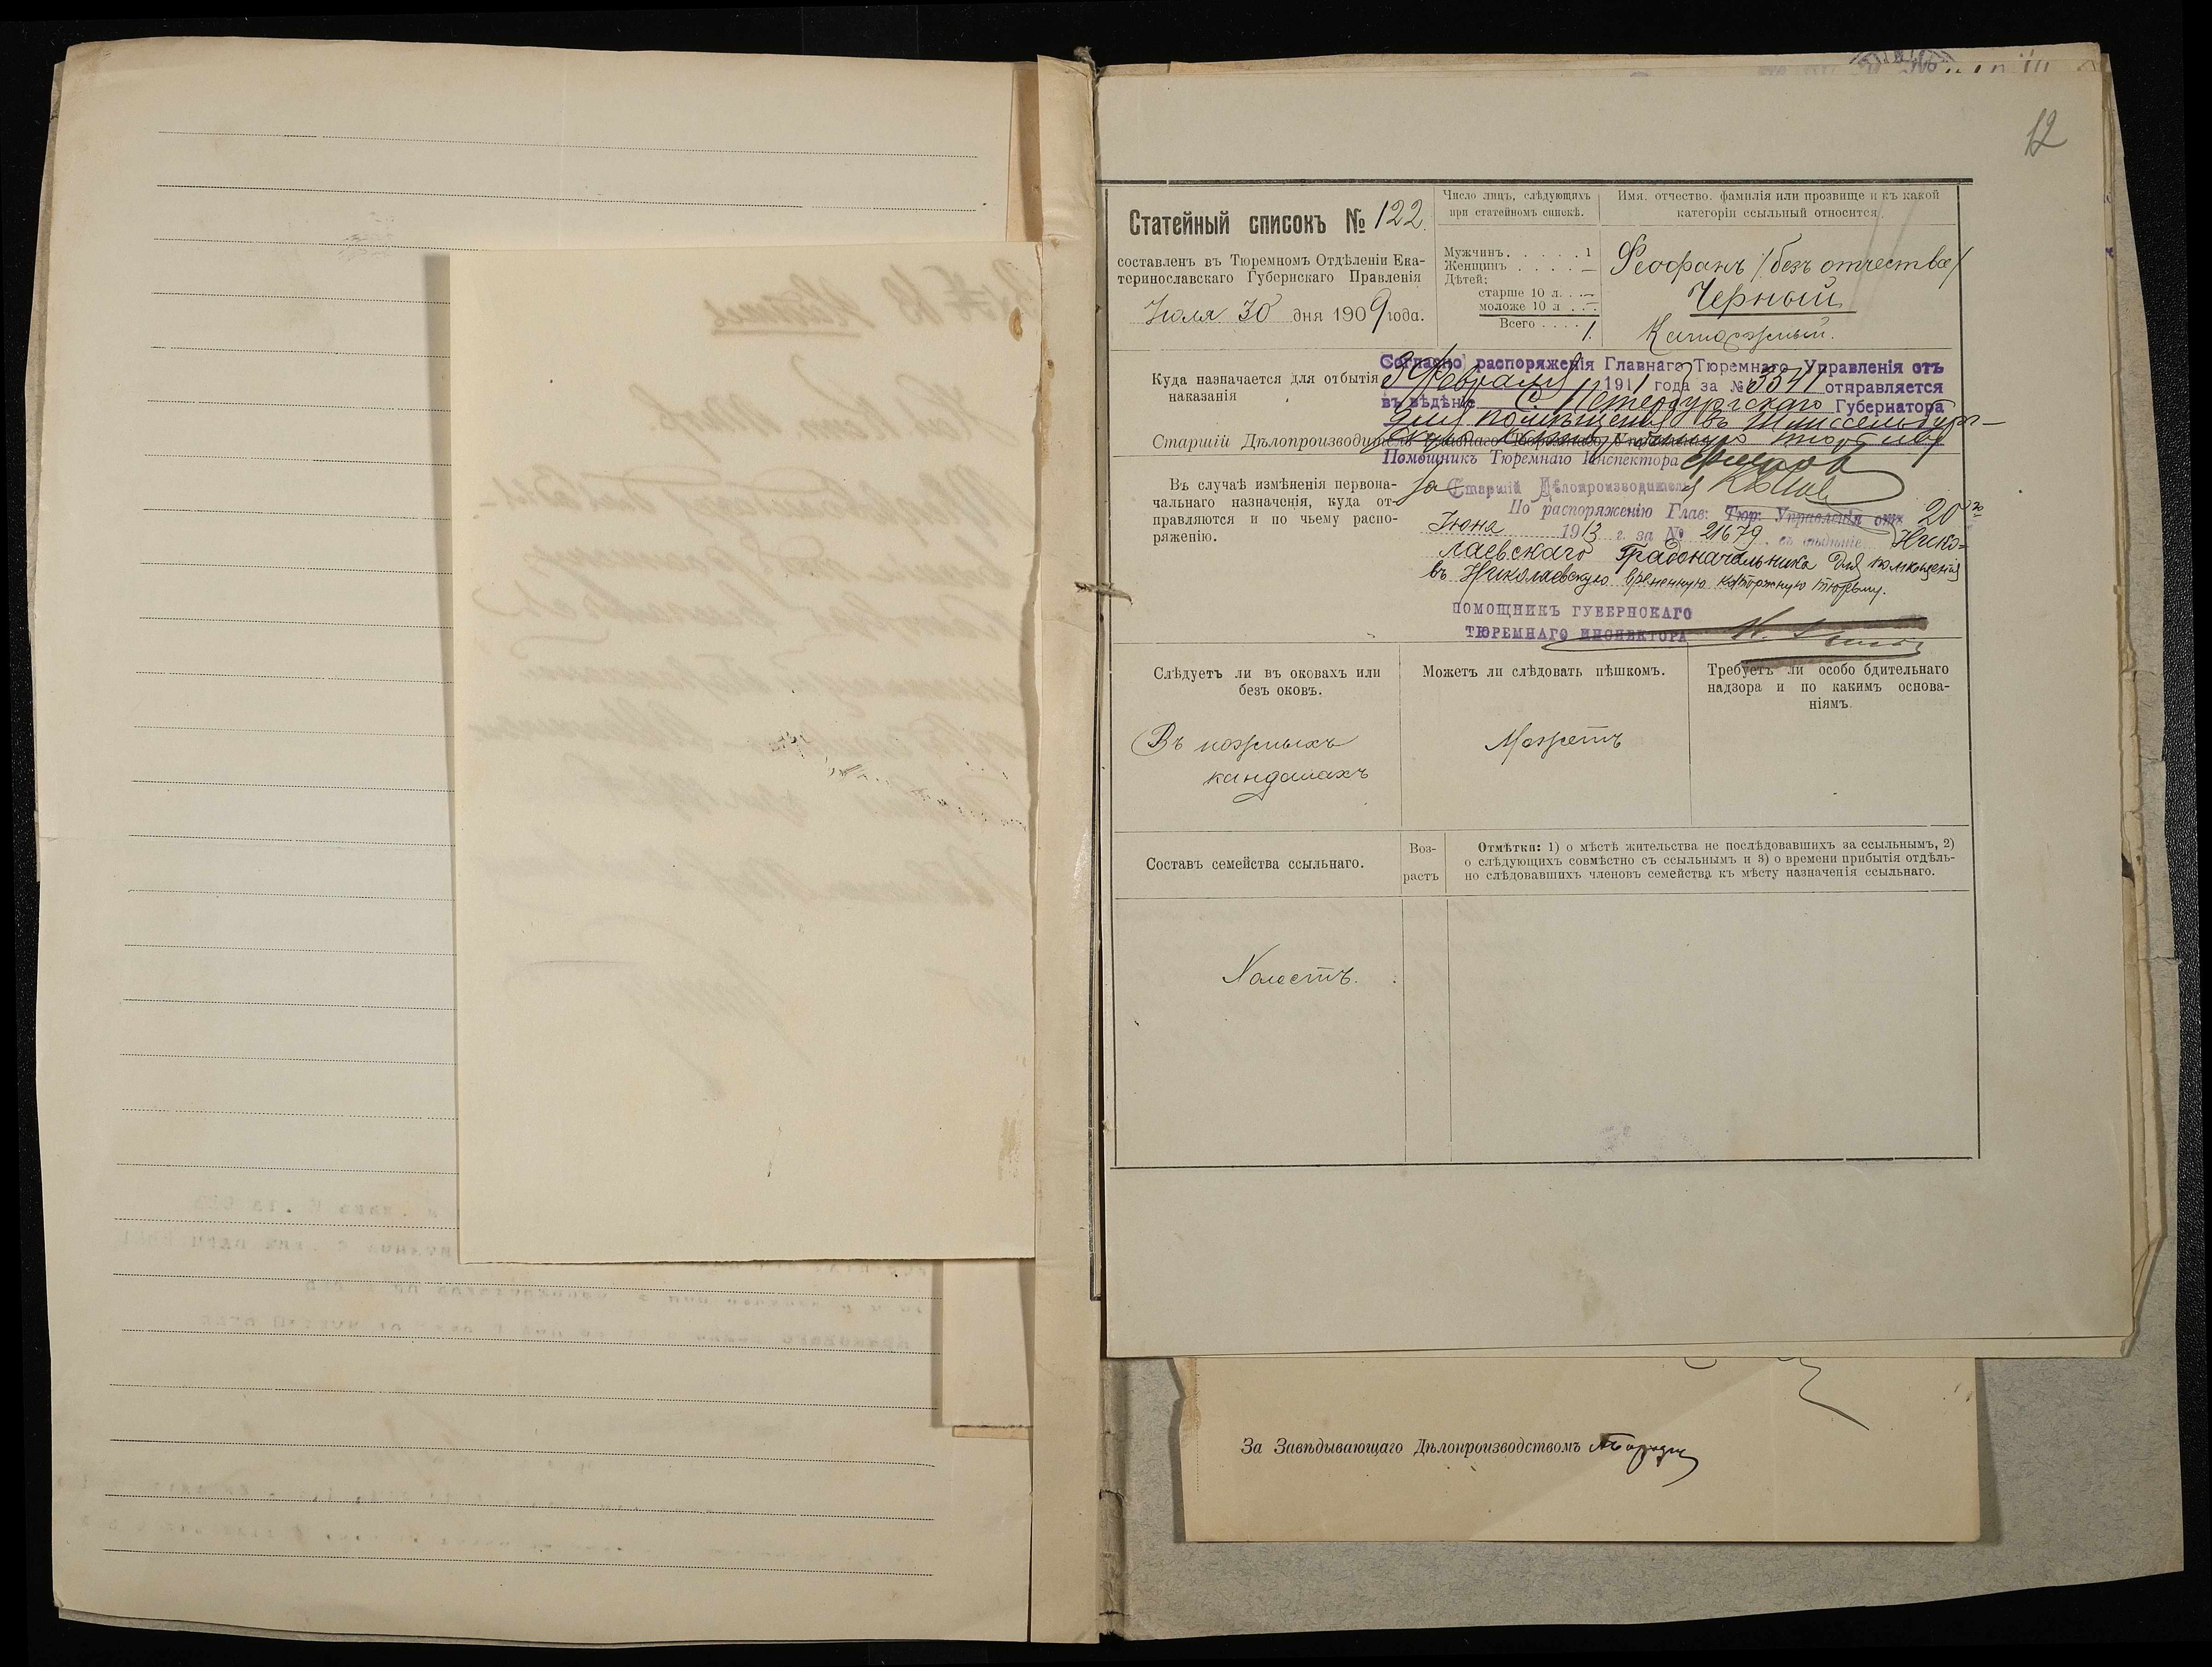 12
Статейный списокъ № 122.
составленъ въ Тюремномъ Отдѣленіи Ека-
теринославскаго Губернскаго Правленія
Іюля 30 дня 1909 года.
Число лицъ, слѣдующихъ
при статейномъ спискѣ.
Мужчинъ. . . . . . 1
Женщинъ . . . . . —
Дѣтей:
старше 10 л. . . —
моложе 10 л . . . —
Всего . . . . 1.
Имя. отчество. фамилія или прозвище и къ какой
категоріи ссыльный относится.
Феофанъ /безъ отчества/
Черный
Каторжный.
Куда назначается для отбытія
наказанія
Согласно распоряженія Главнаго Тюремнаго Управленія отъ
9 Февраля 1911 года за № 3541 отправляется
въ вѣдѣніе С. Петербургскаго Губернатора
для помѣщенія въ Шлиссельбург-
Старшій Дѣлопроизводитель
скую каторжную тюрьму
Помощникъ Тюремнаго Инспектора
Въ случаѣ измѣненія первона-
чальнаго назначенія, куда от-
правляются и по чьему распо-
ряженію.
За Старшій Дѣлопроизводитель
По распоряженію Глав: Тюр: Управленія отъ 20го
Іюня 1913 г. за № 21679 въ вѣдѣніе Нико-
лаевскаго Градоначальника для помѣщенія
въ Николаевскую временную каторжную тюрьму.
ПОМОЩНИКЪ ГУБЕРНСКАГО
ТЮРЕМНАГО ИНСПЕКТОРА
Слѣдуетъ ли въ оковахъ или
безъ оковъ.
Въ ножныхъ
кандалахъ
Можетъ ли слѣдовать пѣшкомъ.
Можетъ
Требуетъ ли особо бдительнаго
надзора и по какимъ основа-
ніямъ.
Составъ семейства ссыльнаго.
Воз-
растъ
Отмѣтки: 1) о мѣстѣ жительства не послѣдовавшихъ за ссыльнымъ, 2)
о слѣдующихъ совмѣстно съ ссыльнымъ и 3) о времени прибытія отдѣль-
но слѣдовавшихъ членовъ семейства къ мѣсту назначенія ссыльнаго.
Холостъ.
За Завѣдывающаго Дѣлопроизводствомъ